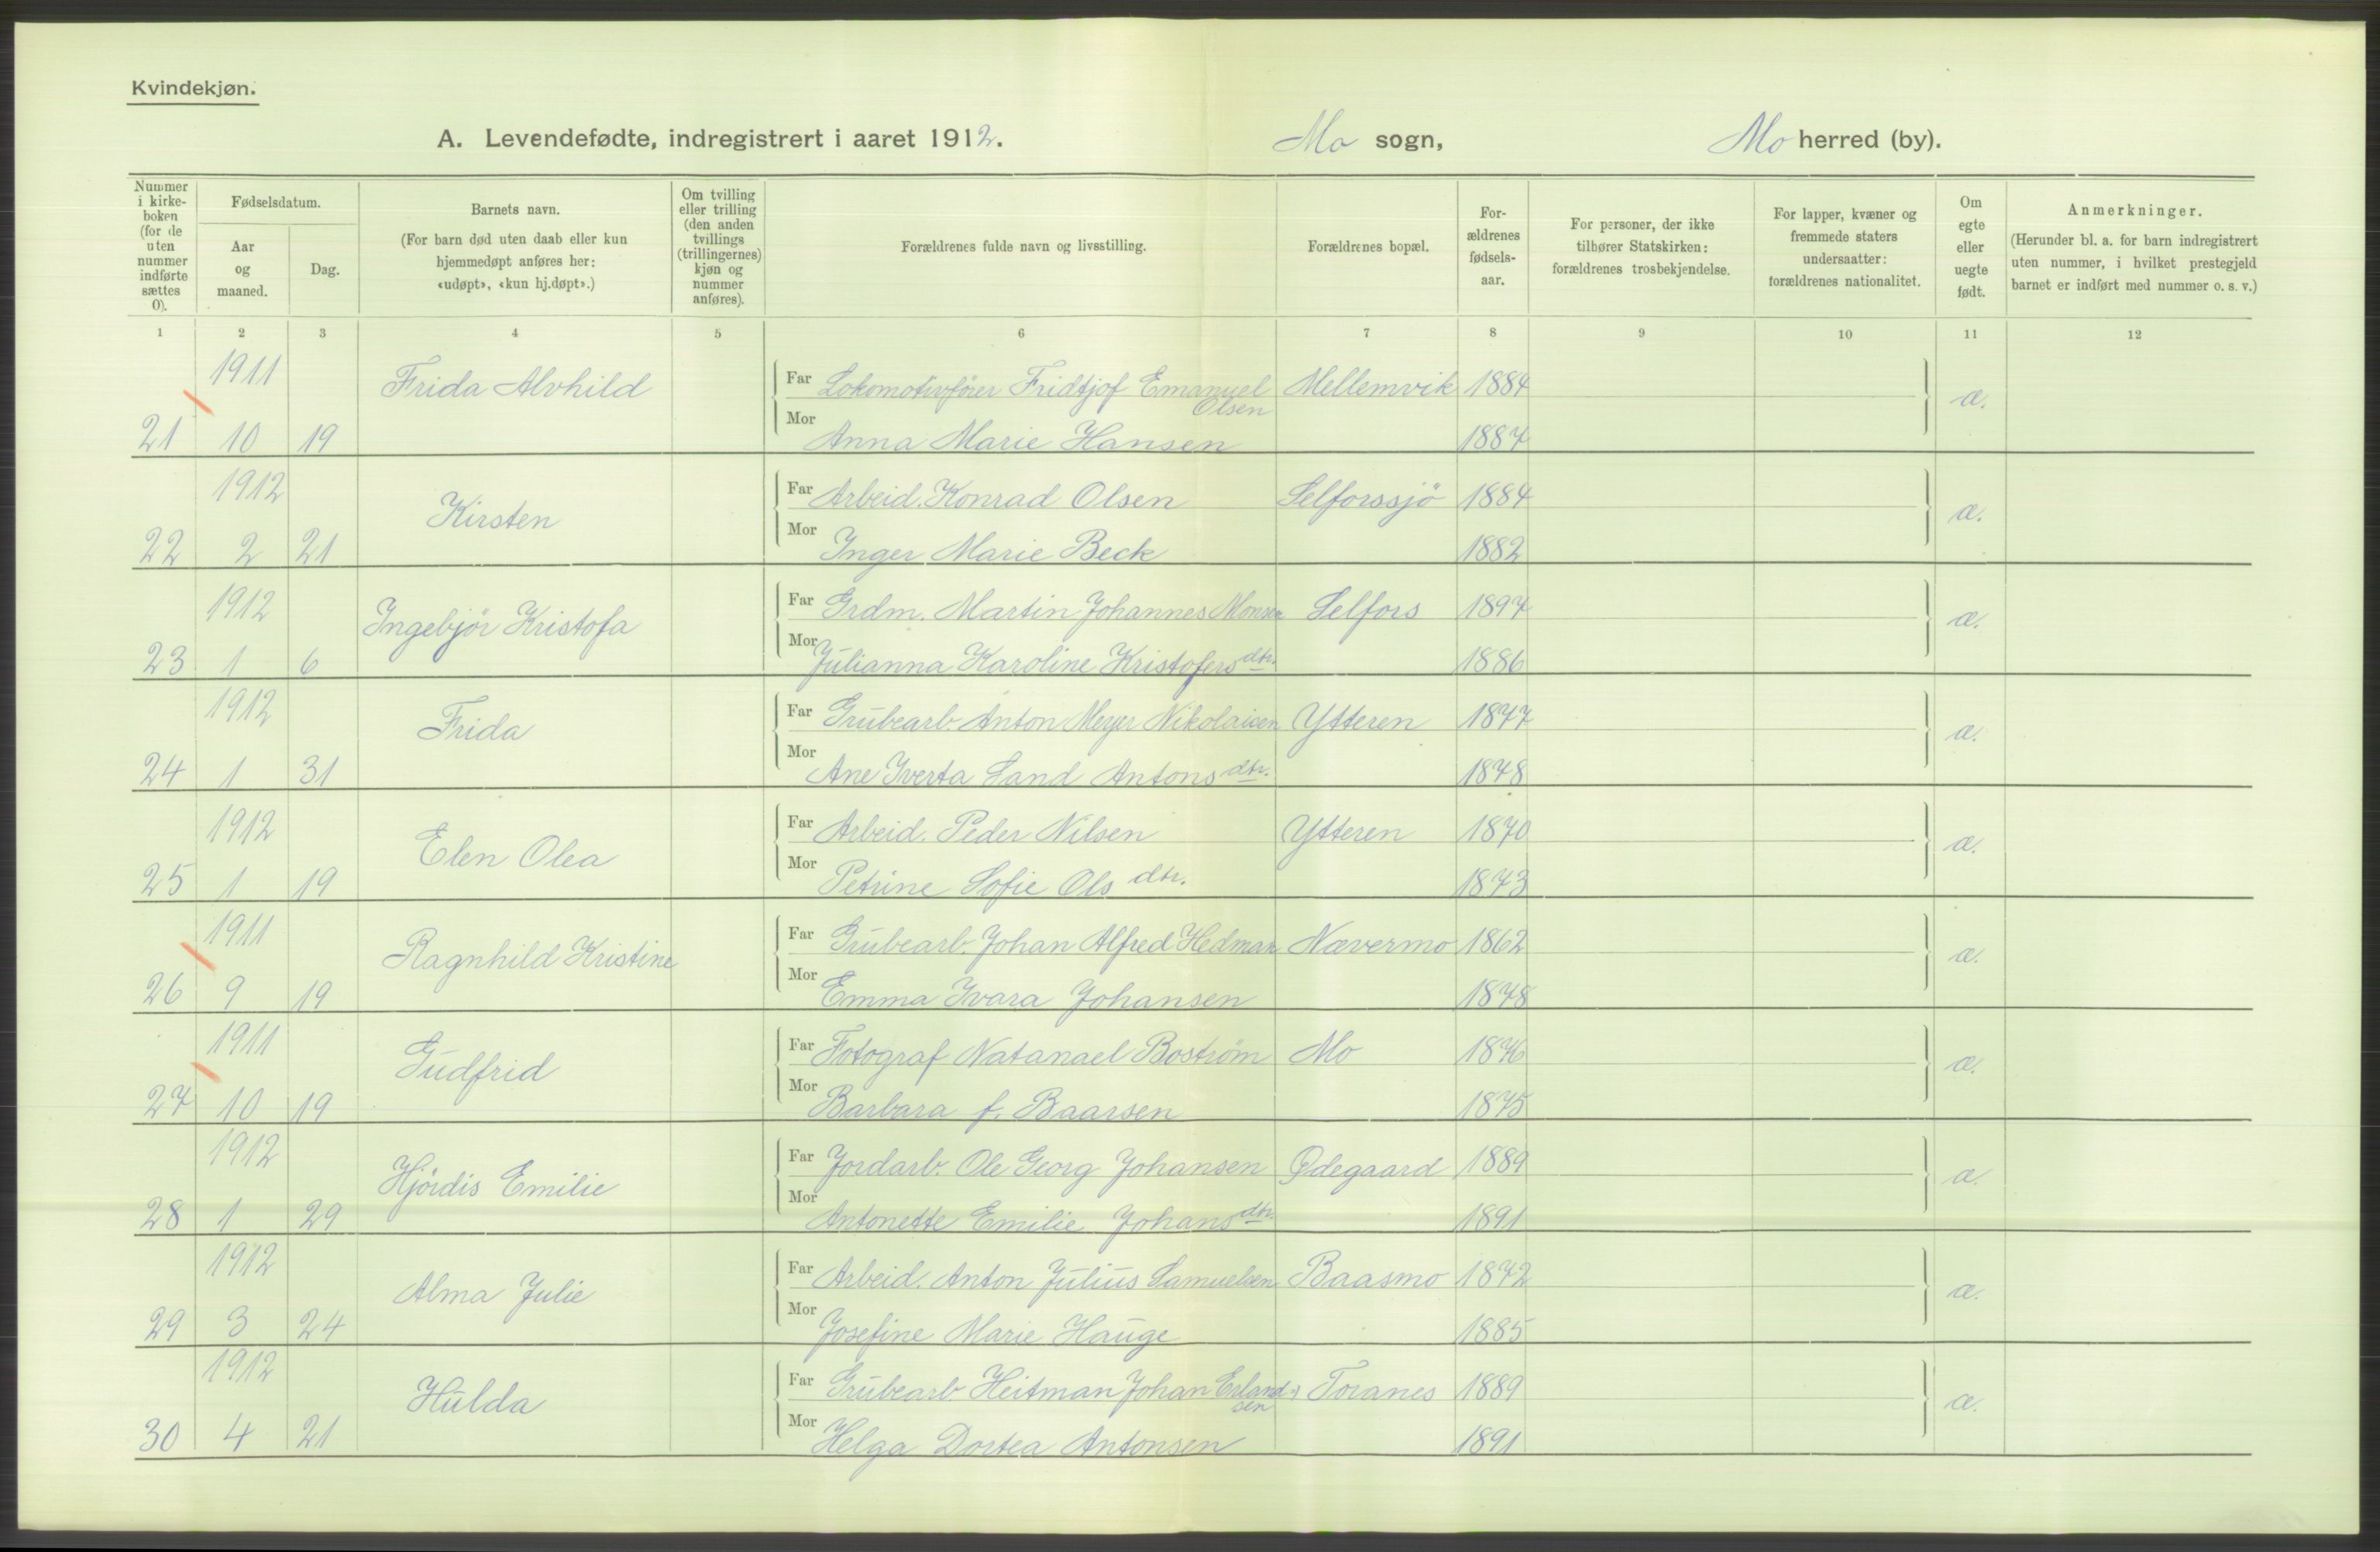 Kvindekjøn.
A. Levendefødte, indregistrert i aaret 1912. Mo sogn, Mo herred (by).
Nummer i kirke-boken (for de uten nummer indførte sættes 0).
Fødselsdatum.
Aar og maaned.
Dag.
Barnets navn.
(For barn død uten daab eller kun hjemmedøpt anføres her: «udøpt», «kun hj.døpt».)
Om tvilling eller trilling (den anden tvillings (trillingernes) kjøn og nummer anføres).
Forældrenes fulde navn og livsstilling.
Forældrenes bopæl.
For-ældrenes fødsels-aar.
For personer, der ikke tilhører Statskirken: forældrenes trosbekjendelse.
For lapper, kvæner og fremmede staters undersaatter: forældrenes nationalitet.
Om egte eller uegte født.
Anmerkninger.
(Herunder bl. a. for barn indregistrert uten nummer, i hvilket prestegjeld barnet er indført med nummer o. s. v.)
1 2 3 4 5 6 7 8 9 10 11 12
1911 Frida Alvhild Far Lokomotivfører Fridtjof Emanuel Olsen Mellemvik 1884 æ.
21 10 19 Mor Anna Marie Hansen 1887
1912 Kirsten Far Arbeid. Konrad Olsen Selforssjö 1884 æ.
22 2 21 Mor Inger Marie Beck 1882
1912 Ingebjör Kristofa Far Grdm. Martin Johannes Monsen Selfors 1897 æ.
23 1 6 Mor Julianna Karoline Kristofersdtr. 1886
1912 Frida Far Grubearb. Anton Meyer Nikolaisen Ytteren 1877 æ.
24 1 31 Mor Ane Iverta Sand Antonsdtr. 1878
1912 Elen Olea Far Arbeid. Peder Nilsen Ytteren 1870 æ.
25 1 19 Mor Petrine Sofie Ols dtr. 1873
1911 Ragnhild Kristine Far Grubearb. Johan Alfred Hedman Nævermo 1862 æ.
26 9 19 Mor Emma Ivara Johansen 1878
1911 Gudfrid Far Fotograf Natanael Boström Mo 1876 æ.
27 10 19 Mor Barbara f. Baarsen 1875
1912 Hjördis Emilie Far Jordarb. Ole Georg Johansen Ødegaard 1889 æ.
28 1 29 Mor Antonette Emilie Johansdtr. 1891
1912 Alma Julie Far Arbeid. Anton Julius Samuelsen Baasmo 1872 æ.
29 3 24 Mor Josefine Marie Hauge 1885
1912 Hulda Far Grubearb. Heitman Johan Erlandsen Toranes 1889 æ.
30 4 21 Mor Helga Dortea Antonsen 1891